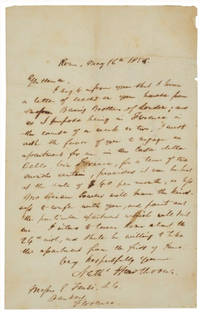 Rome, May 16th 1858.
Gentlemen,
I beg to inform you that I have
a letter of credit on your house from
Baring Brothers of London; and
as I propose being in Florence in
the course of a week or two, I must
ask the favor of you to engage an
apartment for me in the Casa
Bella, Florence, for a term of two
months certain, provided it can be had
at the rate of $ 40 per month, or less
Mrs will have the kind-
ness to with you, and point out
the particular apartment which will suit
me. I intend to leave Rome about the
24th inst. and shall be willing to take
the apartment from the first of June.
Very respectfully yours
Nathl Hawthorne.
Messrs E. Fenzi & Co.
Bankers
Florence